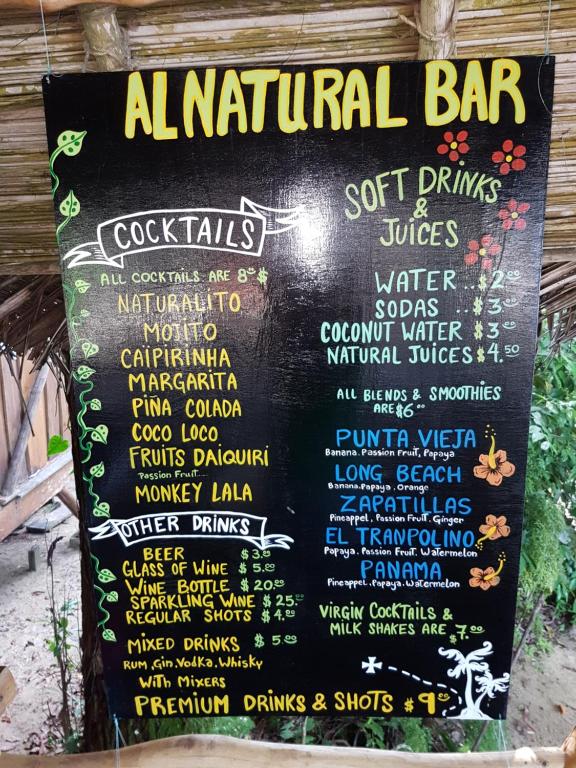 ALNATURAL BAR
COCKTAILS
ALL COCKTAILS ARE 8.00 $
NATURALITO
MOJITO
CAIPIRINHA
MARGARITA
PIÑA COLADA
COCO LOCO
FRUITS DAIQUIRI
Passion Fruit...
MONKEY LALA
OTHER DRINKS
BEER $3.00
GLASS OF WINE $5.00
WINE BOTTLE $20.00
SPARKLING WINE $25.00
REGULAR SHOTS $4.00
MIXED DRINKS $5.00
RUM, Gin, Vodka, Whisky
WITH MIXERS
PREMIUM DRINKS & SHOTS $9.00
SOFT DRINKS
&
JUICES
WATER ..$2.00
SODAS ..$3.00
COCONUT WATER $3.00
NATURAL JUICES $4.50
ALL BLENDS & SMOOTHIES
ARE $6.00
PUNTA VIEJA
Banana. Passion Fruit, Papaya
LONG BEACH
Banana. Papaya. Orange
ZAPATILLAS
Pineappel, Passion Fruit. Ginger
EL TRANPOLINO
Papaya. Passion Fruit. Watermelon
PANAMA
Pineappel. Papaya. Watermelon
VIRGIN COCKTAILS &
MILK SHAKES ARE
$7.00